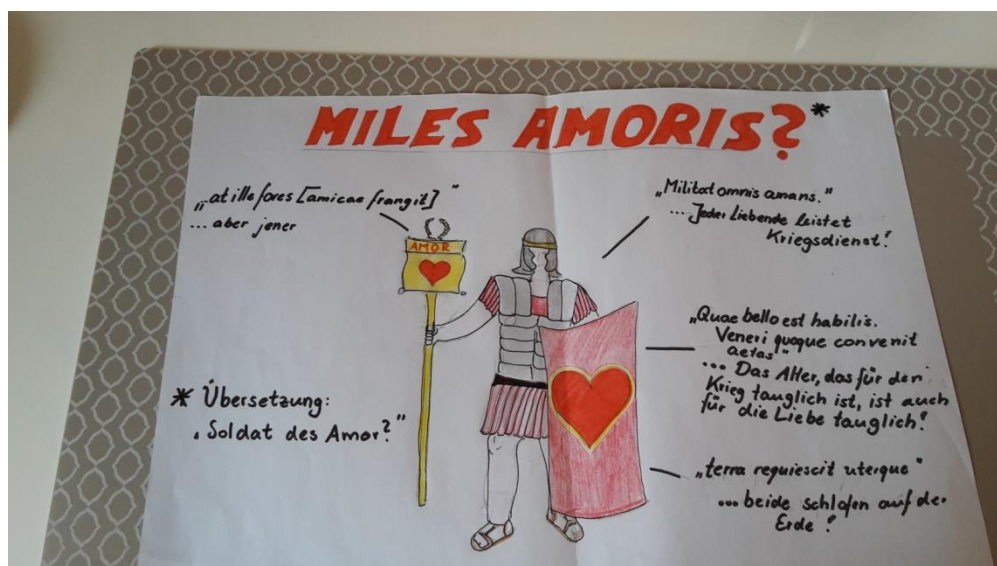 MILES AMORIS?*
„at ille fores [amicae frangit]"
... aber jener
AMOR
„Militat omnis amans."
.... Jeder Liebende leistet
Kriegsdienst!
„Quae bello est habilis.
Veneri quoque convenit
aetas"
... Das Alter, das für den
Krieg tauglich ist, ist auch
für die Liebe tauglich!
* Übersetzung:
„Soldat des Amor?"
„terra requiescit uterque"
... beide schlafen auf der
Erde!